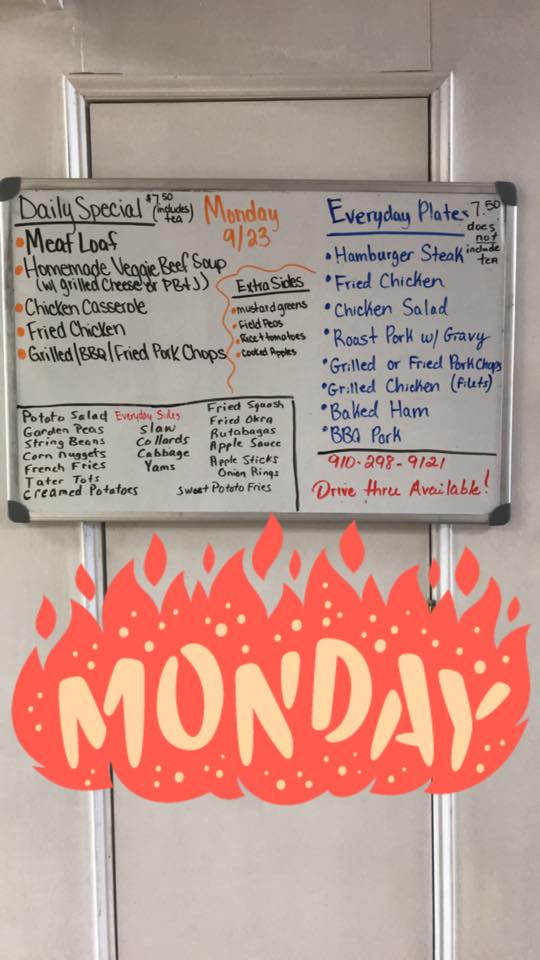 Daily Special $7.50 (includes tea)
Monday
9/23
• Meat Loaf
• Homemade Veggie Beef Soup
(w/ grilled cheese or PB+J)
• Chicken Casserole
• Fried Chicken
• Grilled/BBQ/Fried Pork Chops
Extra Sides
• mustard greens
• Field Peas
• Rice + tomatoes
• Cooked Apples
Everyday Plates 7.50
does not include tea
• Hamburger Steak
• Fried Chicken
• Chicken Salad
• Roast Pork w/ Gravy
• Grilled or Fried Pork Chops
• Grilled Chicken (filets)
• Baked Ham
• BBQ Pork
Everyday Sides
Potato Salad
Garden Peas
String Beans
Corn Nuggets
French Fries
Tater Tots
Creamed Potatoes
Slaw
Collards
Cabbage
Yams
Fried Squash
Fried Okra
Rutabagas
Apple Sauce
Apple Sticks
Onion Rings
Sweet Potato Fries
910-298-9121
Drive thru Available!
MONDAY